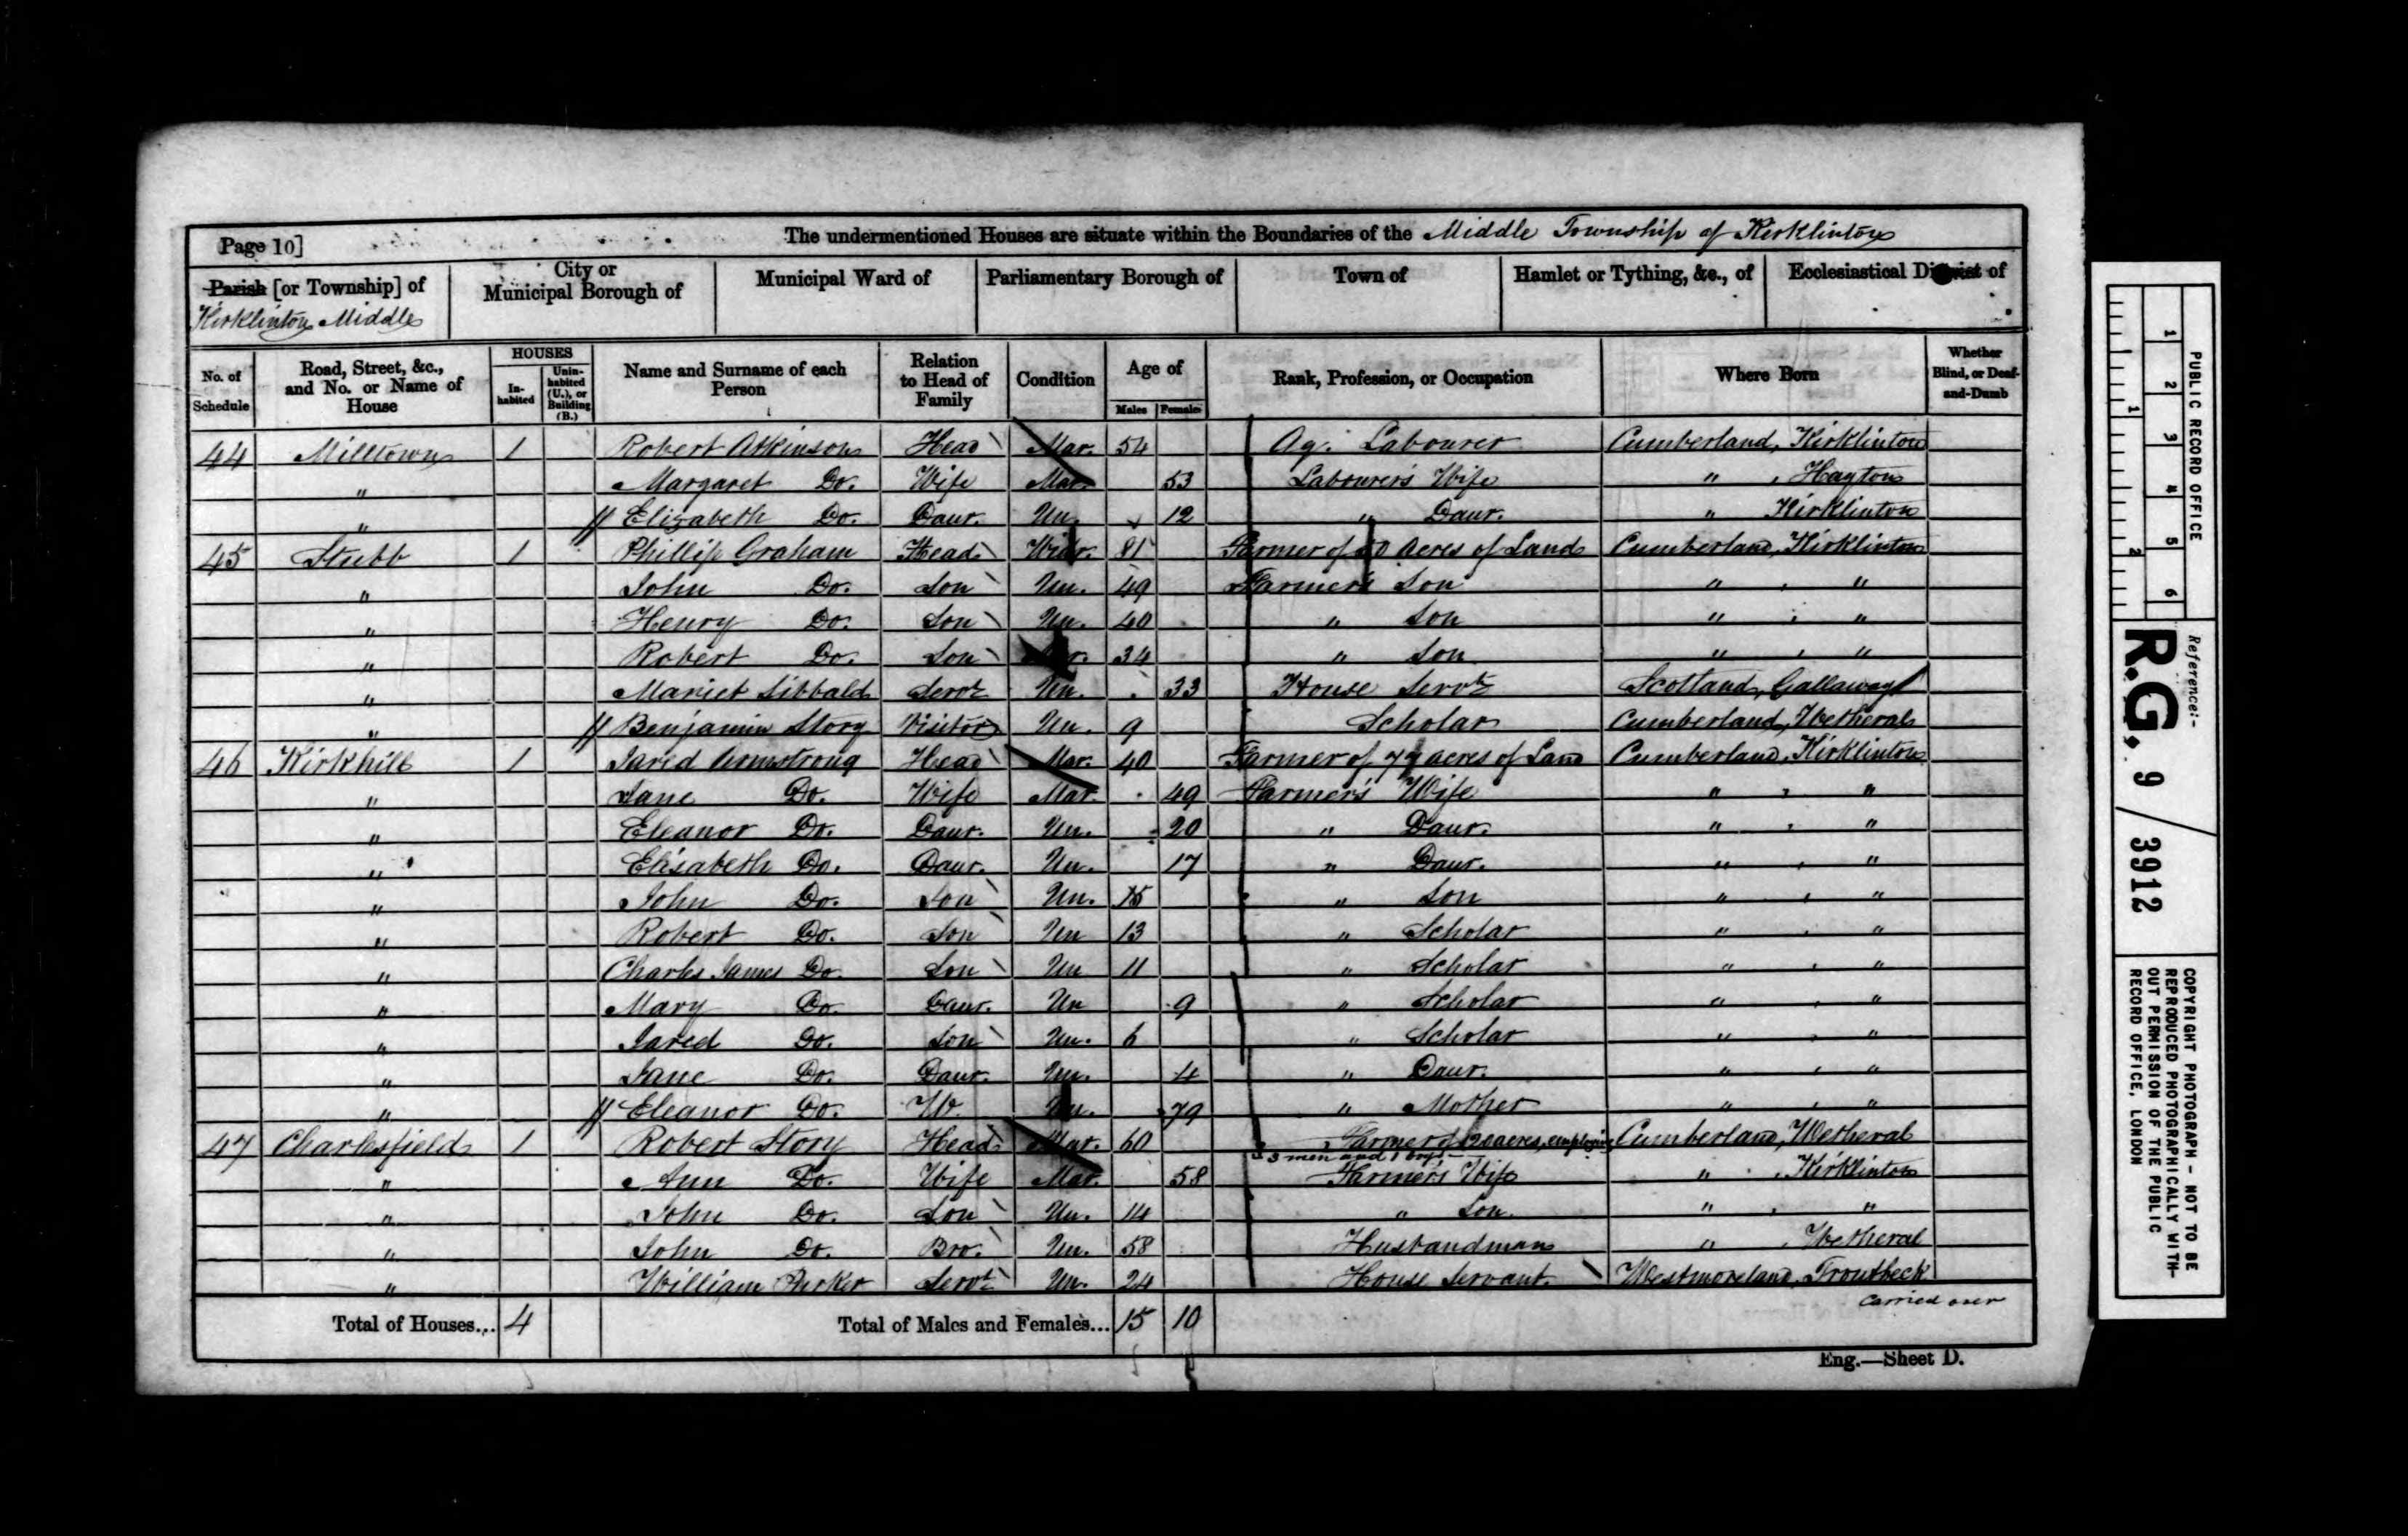 Page 10]
The undermentioned Houses are situate within the Boundaries of the Middle Township of Kirklinton
Parish [or Township] of
Kirklinton Middle
City or
Municipal Borough of
Municipal Ward of
Parliamentary Borough of
Town of
Hamlet or Tything, &c., of
Ecclesiastical District of
No. of
Schedule
Road, Street, &c.,
and No. or Name of
House
HOUSES
In-
habited
Unin-
habited
(U.), or
Building
(B.)
Name and Surname of each
Person
Relation
to Head of
Family
Condition
Age of
Males
Females
Rank, Profession, or Occupation
Where Born
Whether
Blind, or Deaf-
and-Dumb
44 Milltown 1 Robert Atkinson Head Mar. 54 Ag. Labourer Cumberland, Kirklinton
" Margaret Do. Wife Mar. 53 Labourer's Wife " , Hayton
" Elizabeth Do. Daur. Un. 12 " Daur. " Kirklinton
45 Stubb 1 Phillip Graham Head Widr. 81 Farmer of acres of Land Cumberland, Kirklinton
" John Do. Son Un. 49 Farmer's Son " , "
" Henry Do. Son Un. 40 " Son " , "
" Robert Do. Son 34 " Son " , "
" Sibbald Servt Un. 33 House Servt Scotland, Gallaway
" Benjamin Story Visitor Un. 9 Scholar Cumberland, Wetheral
46 Kirkhill 1 Jared Armstrong Head Mar. 40 Farmer of acres of Land Cumberland, Kirklinton
" Jane Do. Wife Mar. 49 Farmer's Wife " , "
" Eleanor Do. Daur. Un. 20 " Daur. " , "
" Elisabeth Do. Daur. Un. 17 " Daur. " , "
" John Do. Son Un. 15 " Son " , "
" Robert Do. Son Un 13 " Scholar " , "
" Charles James Do. Son Un 11 " Scholar " , "
" Mary Do. Daur. Un 9 " Scholar " , "
" Jared Do. Son Un. 6 " Scholar " , "
" Jane Do. Daur. Un. 4 " Daur. " , "
" Eleanor Do. W. Un. 79 " Mother " , "
47 Charlesfield 1 Robert Story Head Mar. 60 Farmer of 120 acres, employing Cumberland, Wetheral
3 men and 1 boy
" Ann Do. Wife Mar. 58 Farmer's Wife " , Kirklinton
" John Do. Son Un. 14 " Son. " , "
" John Do. Bro. Un. 58 Husbandman " , Wetheral
" William Servt Un. 24 House Servant. Westmoreland, Troutbeck
Carried over
Total of Houses... 4
Total of Males and Females... 15 10
Eng.—Sheet D.
PUBLIC RECORD OFFICE
1 2 3 4 5 6
1 2
Reference:-
R.G. 9 / 3912
COPYRIGHT PHOTOGRAPH - NOT TO BE
REPRODUCED PHOTOGRAPHICALLY WITH-
OUT PERMISSION OF THE PUBLIC
RECORD OFFICE, LONDON